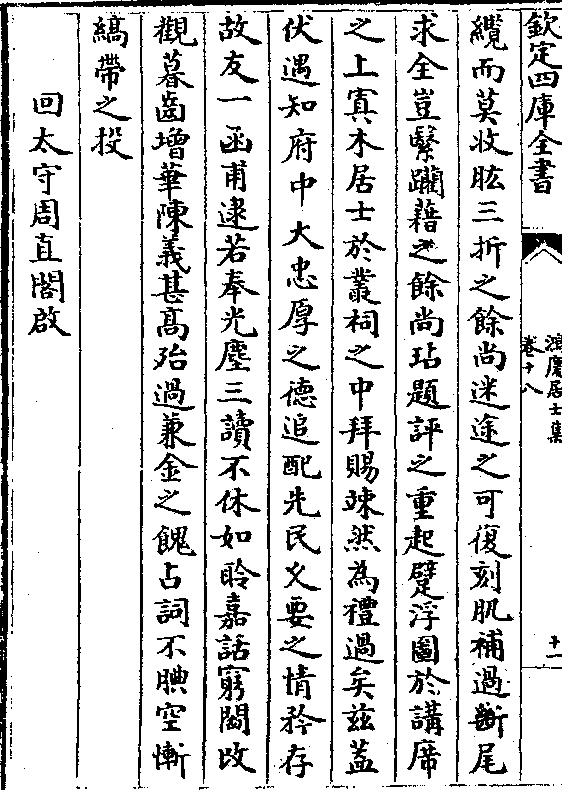 欽定四庫全書
鴻慶居士集
卷十八
十一
纜而莫收肱三折之餘尚迷途之可復刻肌補過斷尾
求全豈繄躪藉之餘尚玷題評之重起躄浮圖於講席
之上寘木居士於叢祠之中拜賜竦然為禮過矣茲蓋
伏遇知府中大忠厚之德追配先民义要之情矜存
故友一函甫逮若奉光塵三讀不休如聆嘉話窮閻改
觀暮齒增華陳義甚髙殆過兼金之餽占詞不腆空慚
縞帶之投
回太守周直閣啟